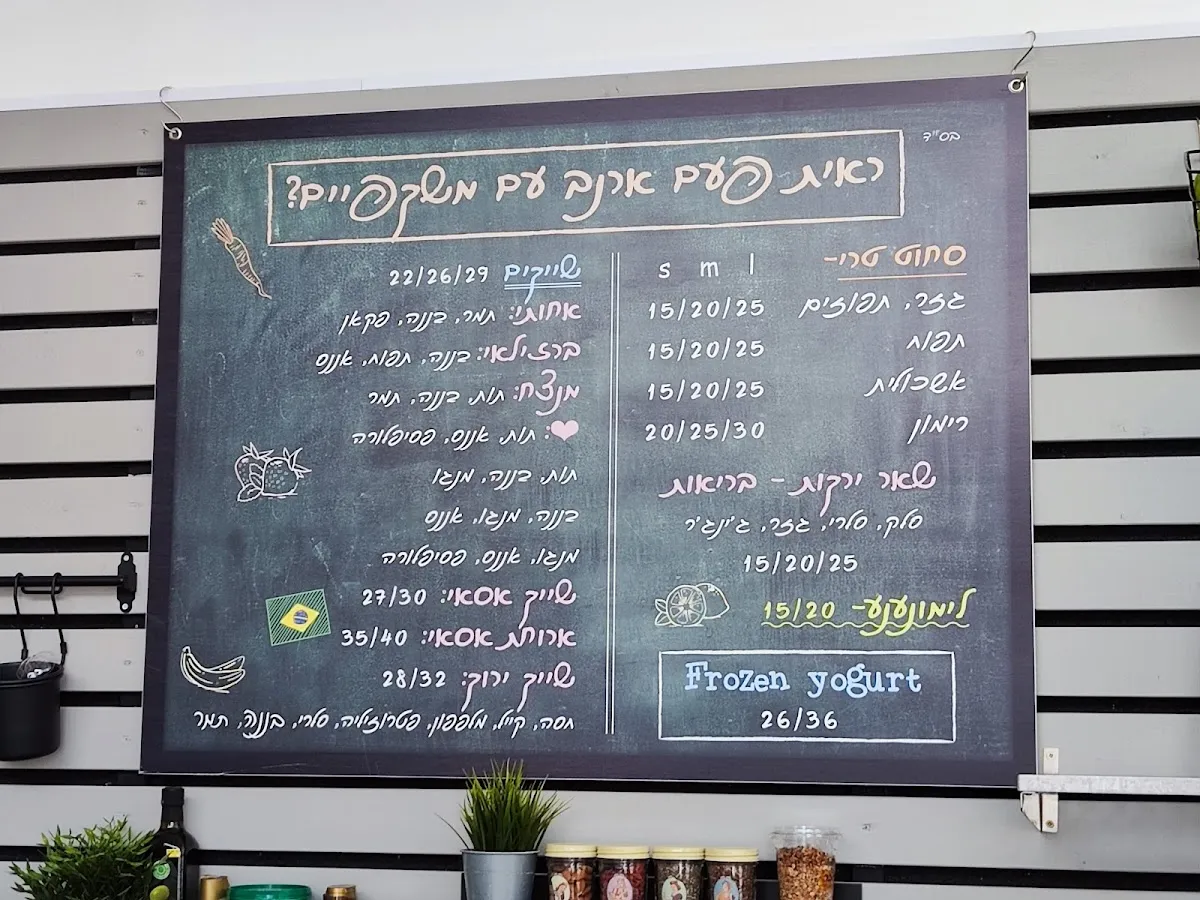 בס״ד
ראית פעם ארנב עם משקפיים?
סחוט טרי-
s m l
גזר, תפוזים 15/20/25
תפוח 15/20/25
אשכולית 15/20/25
רימון 20/25/30
שאר ירקות - בריאות
סלק, סלרי, גזר, ג'ינג'ר
15/20/25
לימונענע- 15/20
Frozen yogurt
26/36
שייקים 22/26/29
אחותי: תמר, בננה, פקאן
ברזילאי: בננה, תפוח, אננס
מנצח: תות, בננה, תמר
♥: תות, אננס, פסיפלורה
תות, בננה, מנגו
בננה, מנגו, אננס
מנגו, אננס, פסיפלורה
שייק אסאי: 27/30
ארוחת אסאי: 35/40
שייק ירוק: 28/32
חסה, קייל, מלפפון, פטרוזיליה, סלרי, בננה, תמר